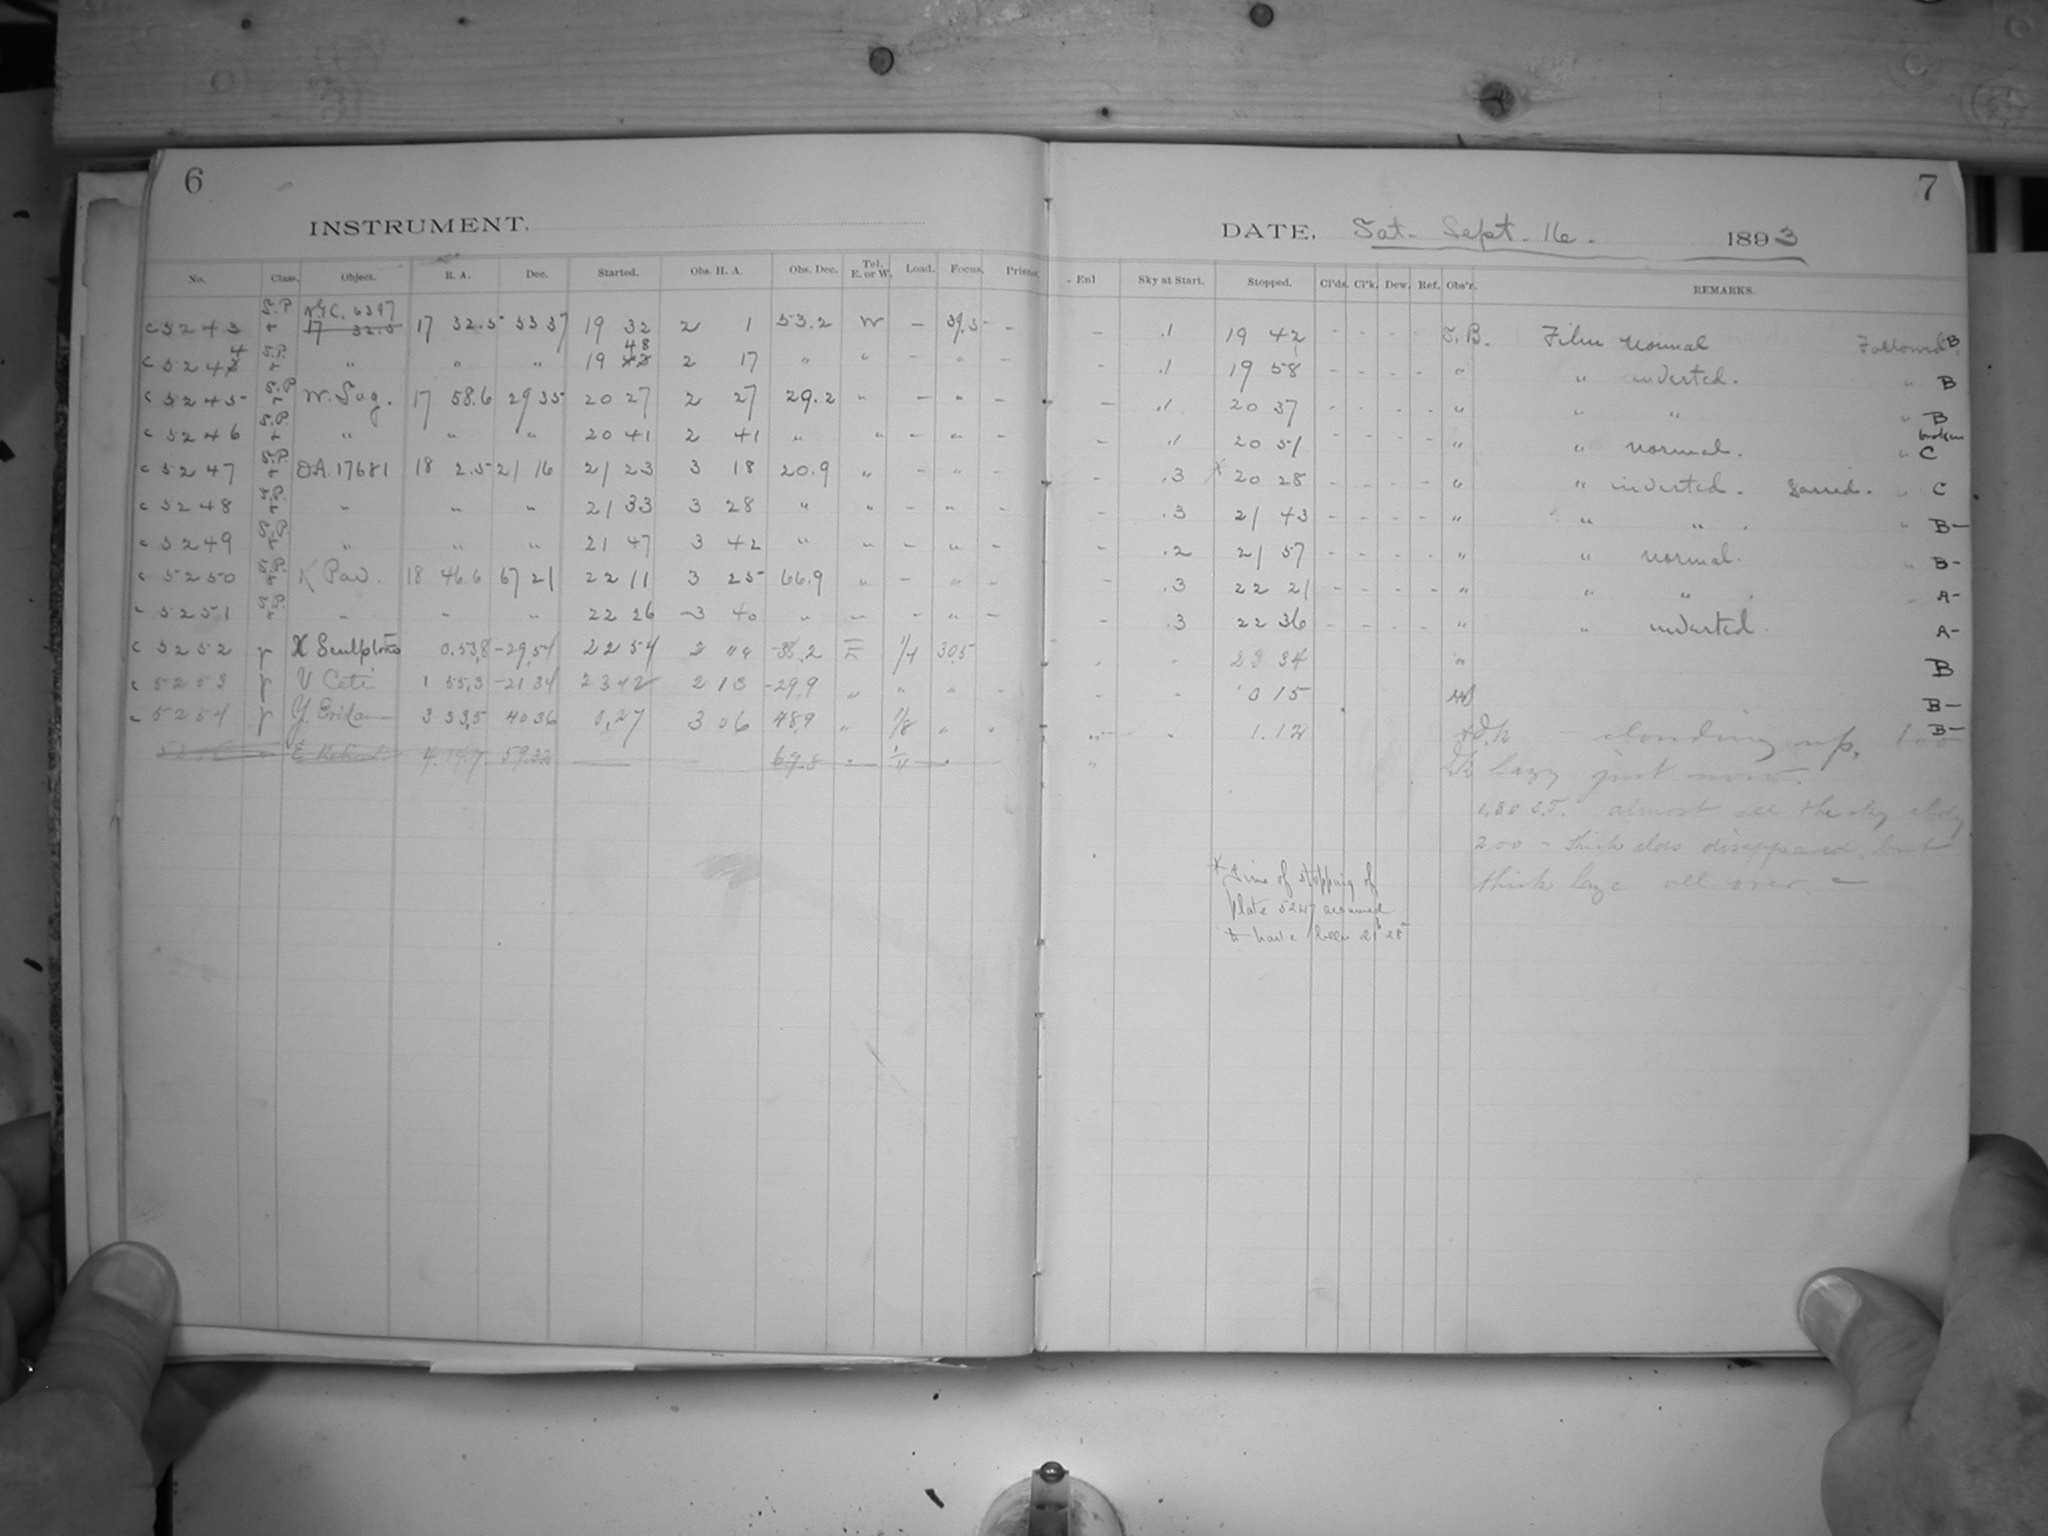 6
7
INSTRUMENT.
DATE, Sat. Sept. 16. 1893
No. Class. Object. R. A. Dec. Started. Obs. H. A. Obs. Dec. Tel. E. or W. Load. Focus. Prisms. Enl Sky at Start. Stopped. Cl'ds. Cl'k. Dew. Ref. Obs'r. REMARKS.
N.G.C. 6397
c 5243 S.P. 17 32.5 17 32.5 53 37 19 32 2 1 53.2 W - 39.5 - - .1 19 42 S.B. Film normal Followed B
48
c 5244 S.P. " " " 19 2 17 " " - " - - .1 19 58 - - - - " " inverted. " B
c 5245 S.P. W. Sag. 17 58.6 29 35 20 27 2 27 29.2 " - " - - .1 20 37 - - - - " " " " B
broken
c 5246 S.P. " " " 20 41 2 41 " " - " - - .1 20 51 - - - - " " normal. " C
c 5247 S.P. OA. 17681 18 2.5 21 16 21 23 3 18 20.9 " - " - - .3 x 20 28 - - - - " " inverted. " C
c 5248 S.P. " " " 21 33 3 28 " " - " - - .3 21 43 - - - - " " " " B-
c 5249 S.P. " " " 21 47 3 42 " " - " - - .2 21 57 - - - - " " normal. " B-
c 5250 S.P. K Pav. 18 46.6 67 21 22 11 3 25 66.9 " - " - - .3 22 21 - - - - " " " " A-
c 5251 S.P. " " " 22 26 3 40 " " - " - - .3 22 36 - - - - " " inverted. A-
c 5252 X Sculptoris 0.53,8 -29,54 22 54 2 -38,2 E 1/4 30.5 23 34 " B
c 5253 V Ceti 1 55,3 -21 34 23 42 2 13 -29,9 " " " " 0 15 B-
c 5254 Y Eridan 3 33,5 40 36 0,27 3 06 48,9 " 1/8 " " 1.12 - clouding up. 1.00 B-
E 59.32 69.8
hazy just now.
1.30 S.T. almost all the sky cldy
2.00 - Thick clds disappeared, but
thick haze all over.
x Time of stopping of
plate 5247 assumed
to have been 21h 28m